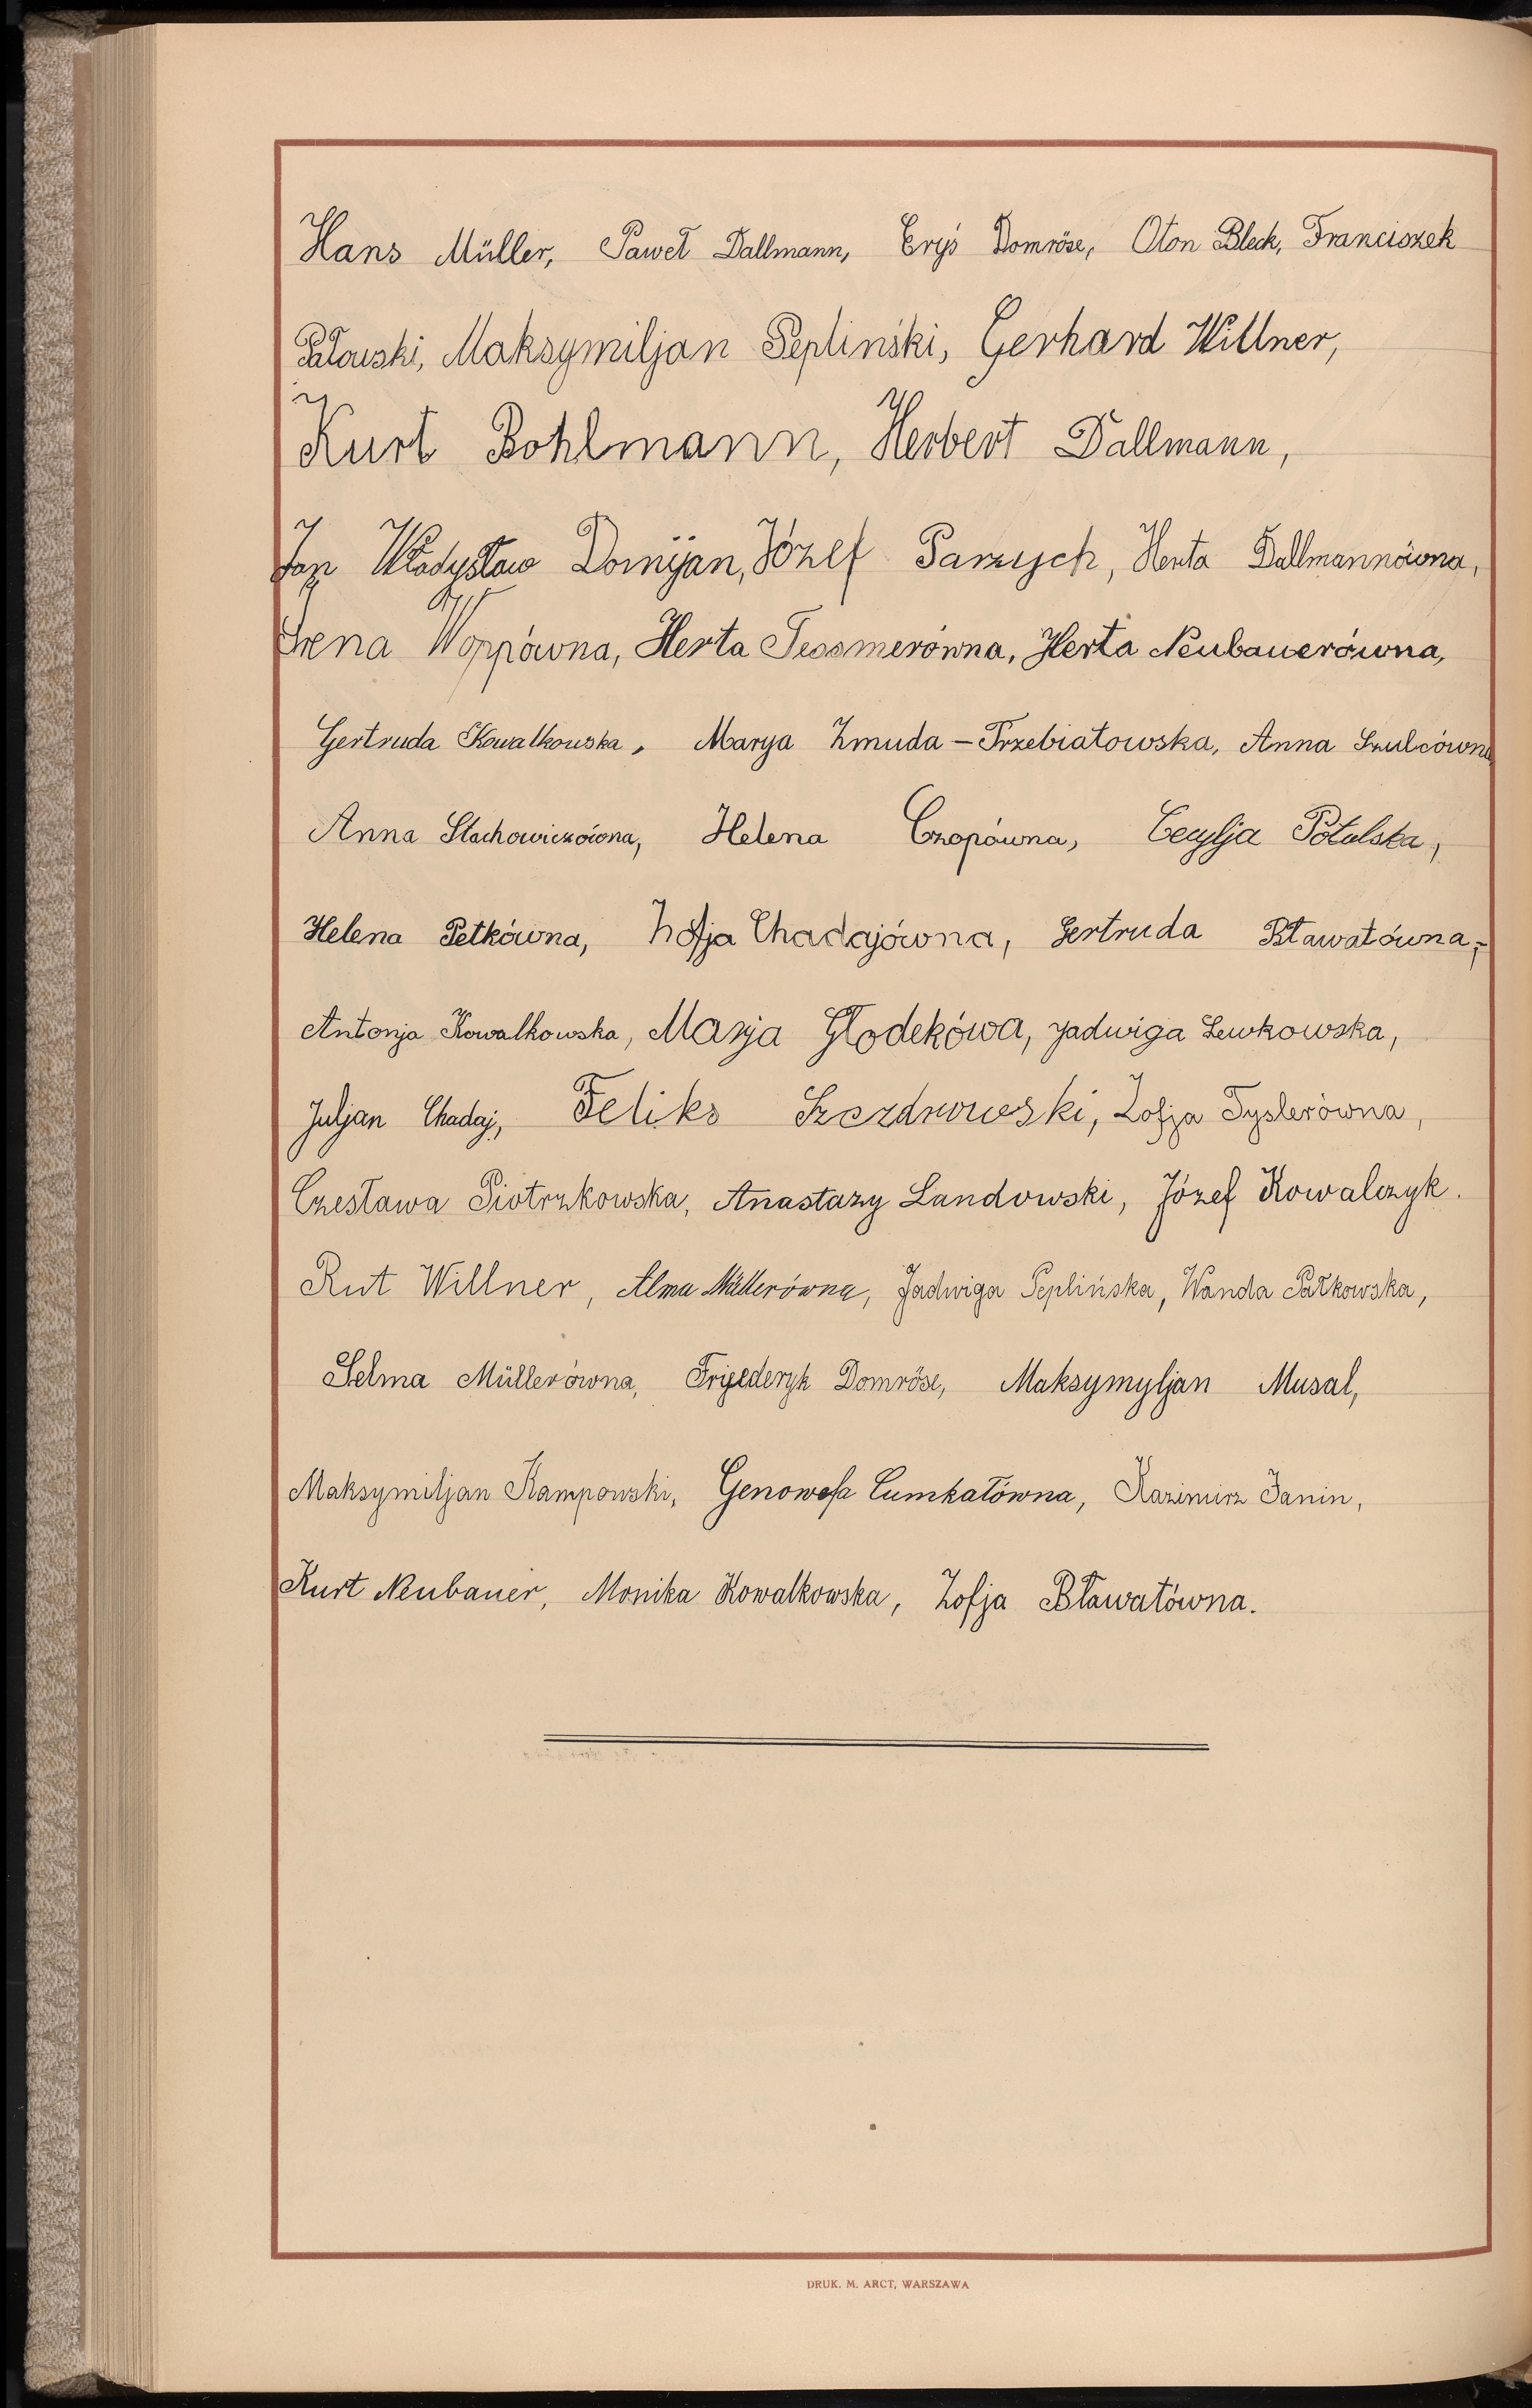 Hans Müller, Paweł Dallmann, Eryś Domröse, Oton Bleck, Franciszek
Pałowski, Maksymiljan Pepliński, Gerhard Willner,
Kurt Bohlmann, Herbert Dallmann,
Jan Władysław Domijan, Józef Parzych, Herta Dallmannówna,
Irena Woppówna, Herta Tessmerówna, Herta Neubauerówna,
Gertruda Kowalkowska, Marya Zmuda-Trzebiatowska, Anna Szulcówna
Anna Stachowiczówna, Helena Czopówna, Cecylja Potulska,
Helena Petkówna, Zofja Chadajówna, Gertruda Bławatówna,
Antonja Kowalkowska, Marja Głodekówa, Jadwiga Lewkowska,
Juljan Chadaj, Feliks Zofja Tyslerówna,
Czesława Piotrzkowska, Anastazy Landowski, Józef Kowalczyk.
Rut Willner, Alma Müllerówna, Jadwiga Peplińska, Wanda Pałkowska,
Selma Müllerówna, Fryederyk Domröse, Maksymyljan Musal,
Maksymiljan Kampowski, Genowefa Cumkatówna, Kazimirz Janin,
Kurt Neubauer, Monika Kowalkowska, Zofja Bławatówna.
DRUK. M. ARCT, WARSZAWA